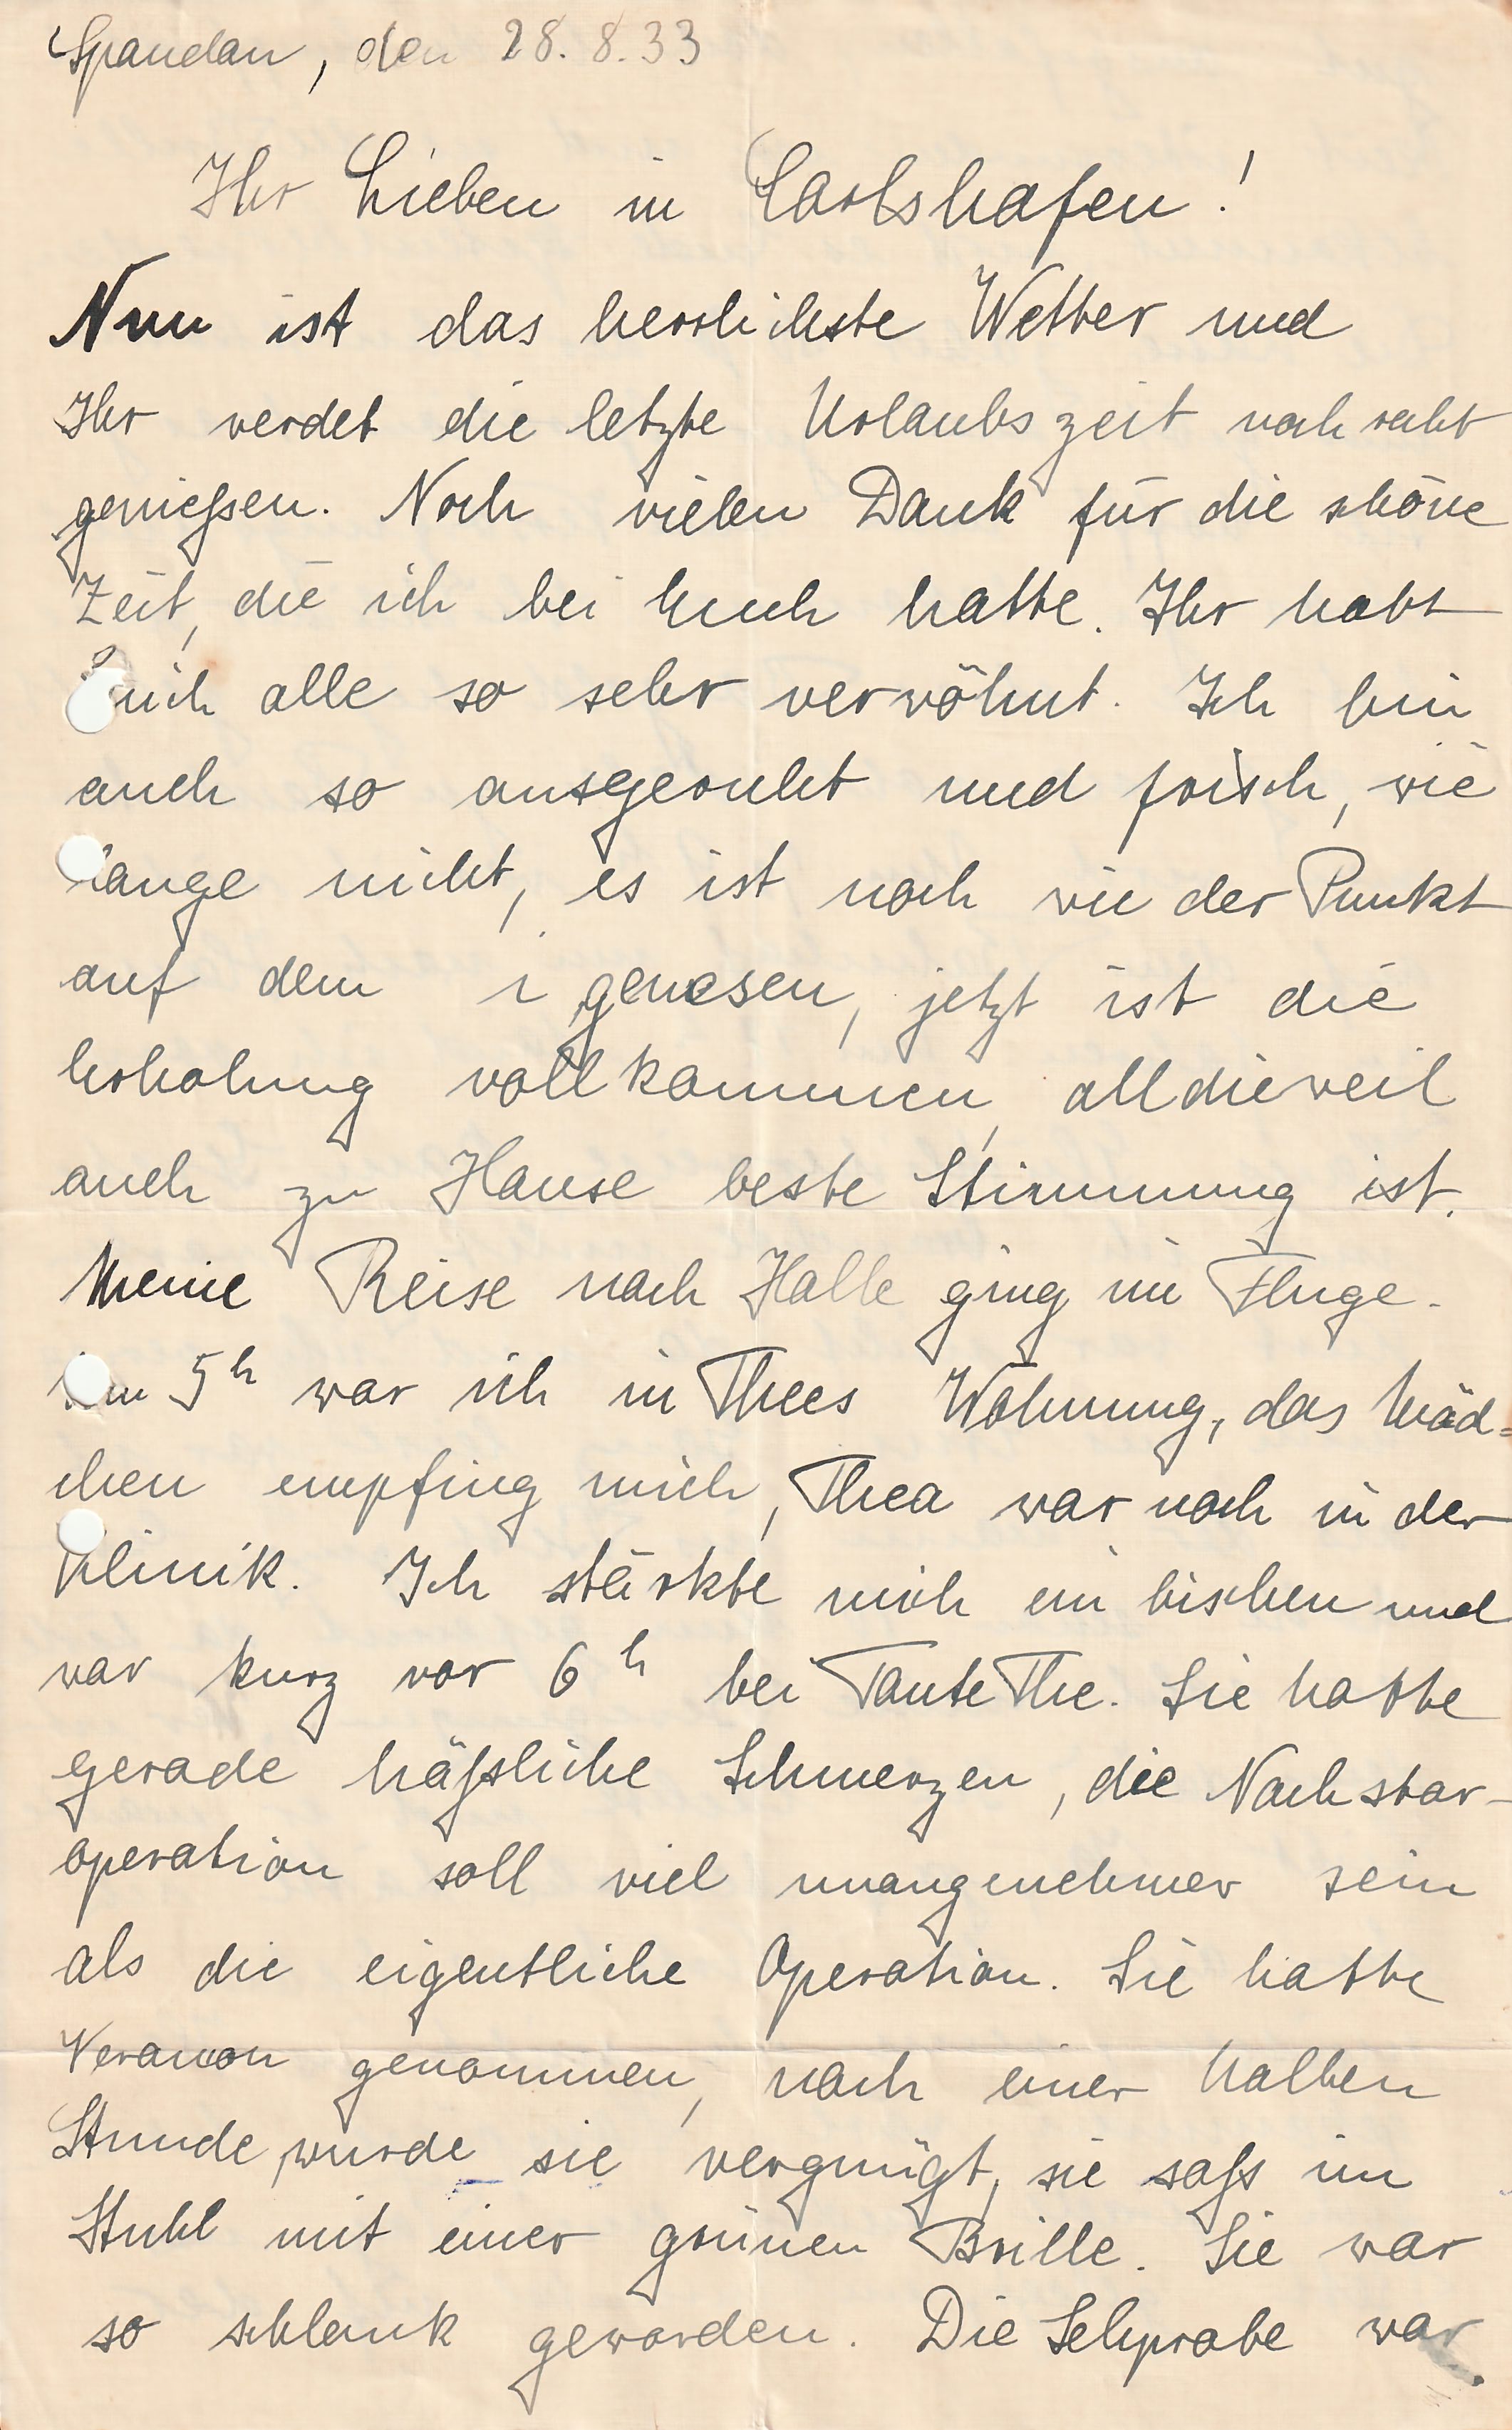 Spandau, den 28. 8. 33
Ihr Lieben in Carlshafen!
Nun ist das herrlichste Wetter und
Ihr werdet die letzte Urlaubszeit noch recht
genießen. Noch vielen Dank für die schöne
Zeit, die ich bei Euch hatte. Ihr habt
mich alle so sehr verwöhnt. Ich bin
auch so ausgeruht und frisch, wie
lange nicht, es ist noch wie der Punkt
auf dem i gewesen, jetzt ist die
Erholung vollkommen, alldieweil
auch zu Hause beste Stimmung ist.
Meine Reise nach Halle ging im Fluge.
Um 5h war ich in Thees Wohnung, das Mäd=
chen empfing mich, Thea war noch in der
Klinik. Ich stärkte mich ein bischen und
war kurz vor 6h bei Tante The. Sie hatte
gerade häßliche Schmerzen, die Nachstar-
operation soll viel unangenehmer sein
als die eigentliche Operation. Sie hatte
Veramon genommen, nach einer halben
Stunde wurde sie vergnügt, sie saß im
Stuhl mit einer grünen Brille. Sie war
so schlank geworden. Die Sehprobe war